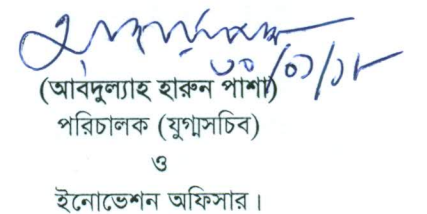 ৩০/০১/১৮
(আবদুল্যাহ হারুন পাশা)
পরিচালক (যুগ্মসচিব)
ও
ইনোভেশন অফিসার।